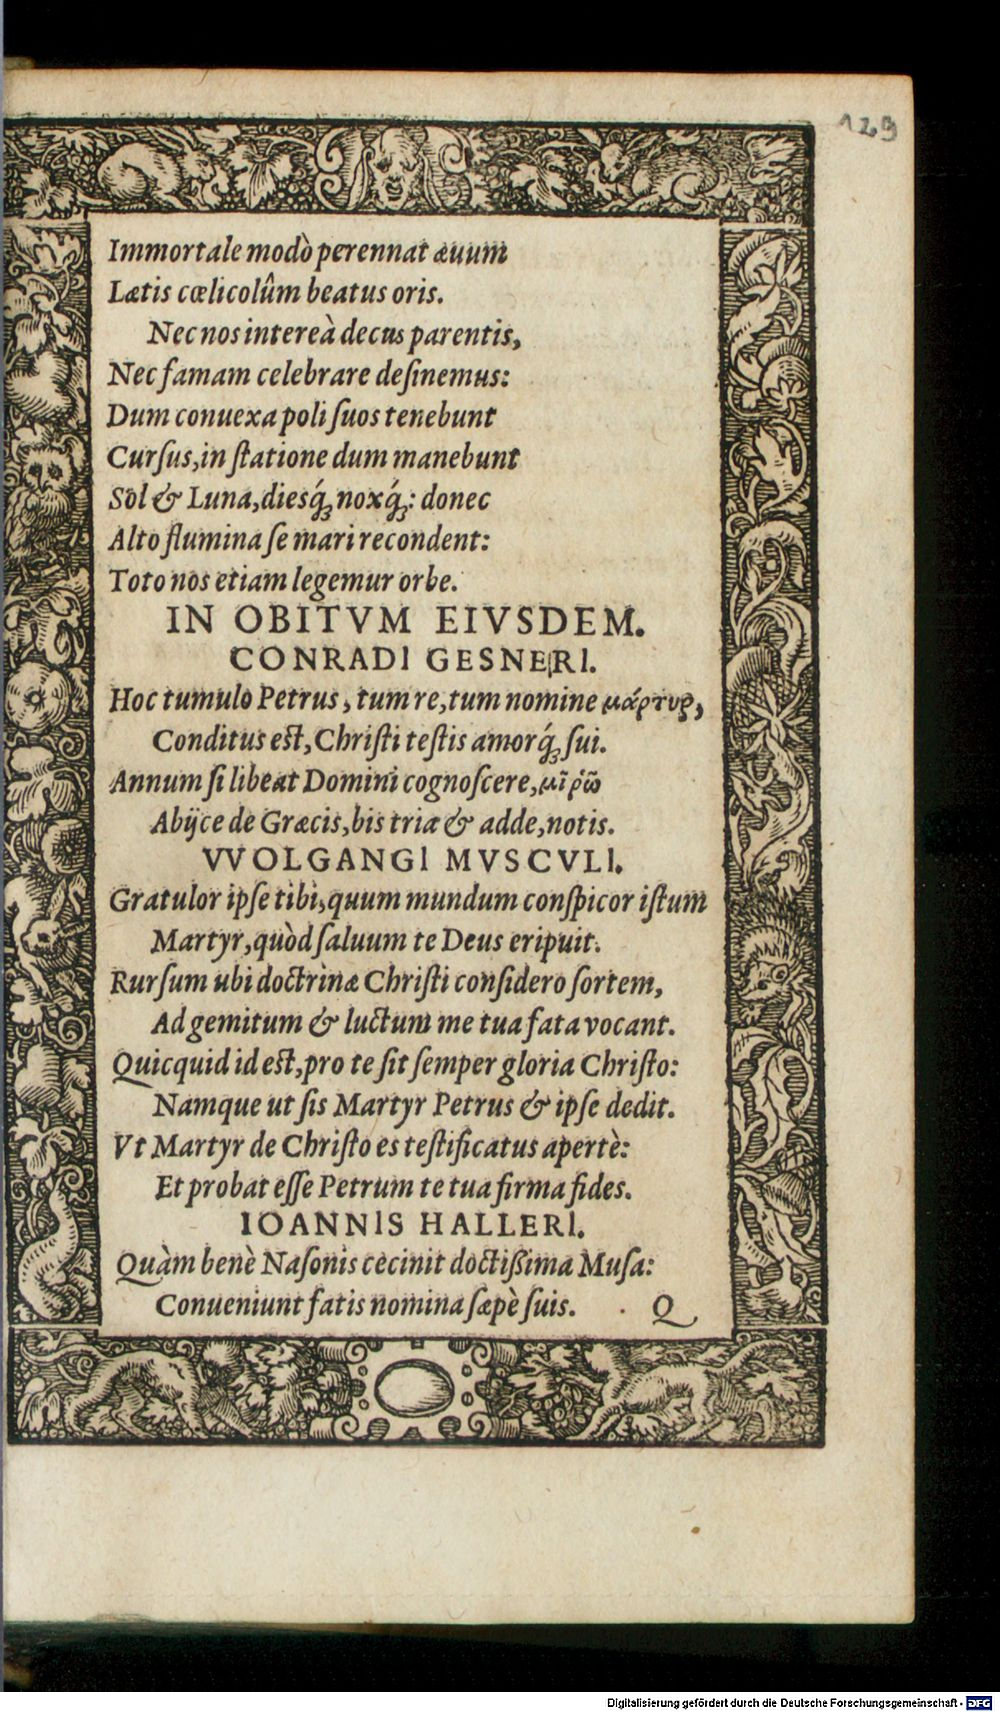 129
Immortale modò perennat æuum
Lætis cœlicolûm beatus oris.
Nec nos intereà decus parentis,
Nec famam celebrare desinemus:
Dum conuexa poli suos tenebunt
Cursus, in statione dum manebunt
Sol & Luna, diesq́ꝫ noxq́ꝫ: donec
Alto flumina se mari recondent:
Toto nos etiam legemur orbe.
IN OBITVM EIVSDEM.
CONRADI GESNERI.
Hoc tumulo Petrus, tum re, tum nomine μάρτυρ,
Conditus est, Christi testis amorq́ꝫ sui.
Annum si libeat Domini cognoscere,
Abijce de Græcis, bis tria & adde, notis.
VVOLGANGI MVSCVLI.
Gratulor ipse tibi, quum mundum conspicor istum
Martyr, quòd saluum te Deus eripuit.
Rursum ubi doctrinæ Christi considero sortem,
Ad gemitum & luctum me tua fata vocant.
Quicquid id est, pro te sit semper gloria Christo:
Namque ut sis Martyr Petrus & ipse dedit.
Vt Martyr de Christo es testificatus apertè:
Et probat esse Petrum te tua firma fides.
IOANNIS HALLERI.
Quàm benè Nasonis cecinit doctißima Musa:
Conueniunt fatis nomina sæpè suis. Q
Digitalisierung gefördert durch die Deutsche Forschungsgemeinschaft - DFG